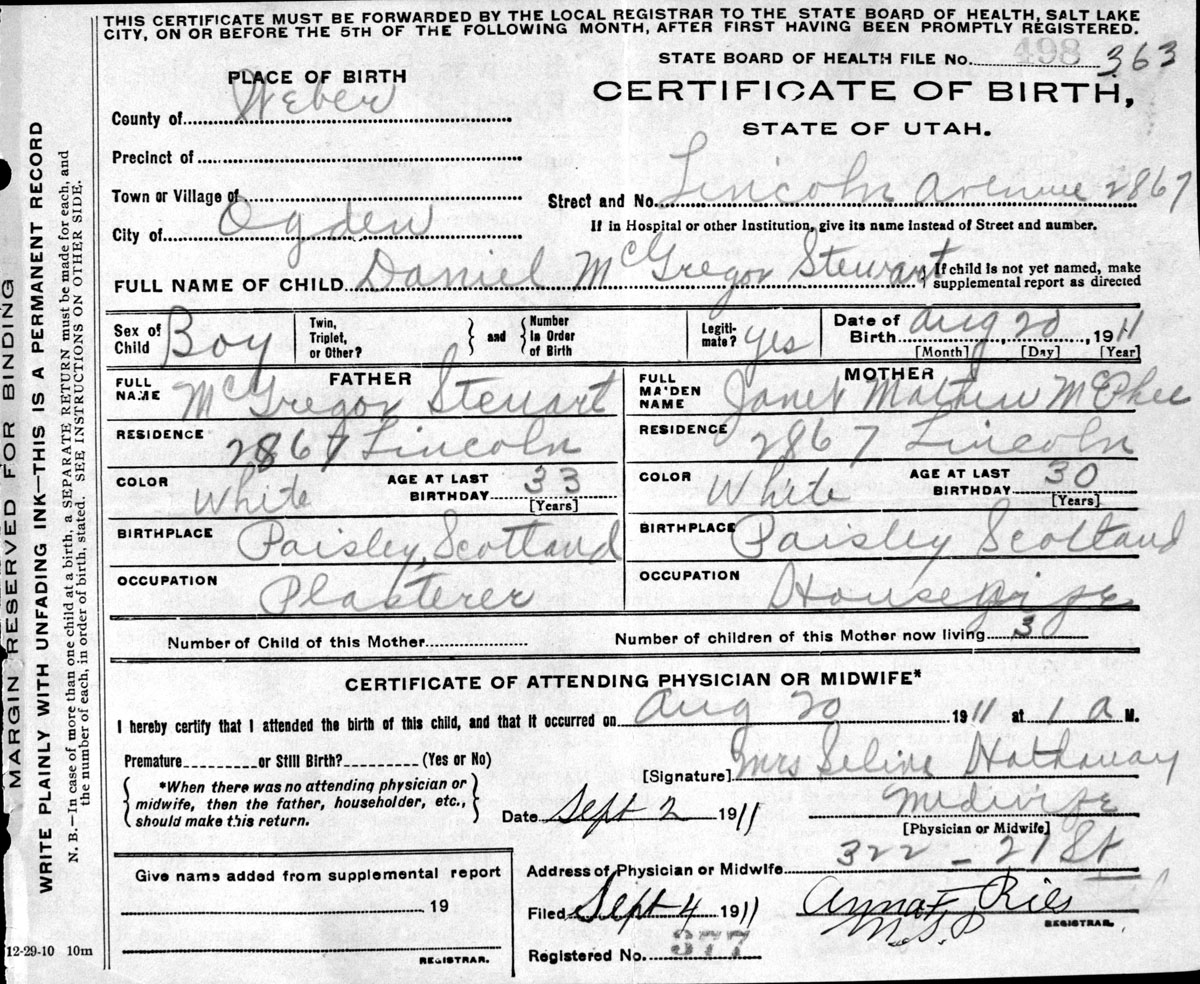 THIS CERTIFICATE MUST BE FORWARDED BY THE LOCAL REGISTRAR TO THE STATE BOARD OF HEALTH, SALT LAKE
CITY, ON OR BEFORE THE 5TH OF THE FOLLOWING MONTH, AFTER FIRST HAVING BEEN PROMPTLY REGISTERED.
STATE BOARD OF HEALTH FILE No. 498 363
PLACE OF BIRTH
CERTIFICATE OF BIRTH,
STATE OF UTAH.
County of Weber
Precinct of
Town or Village of
Street and No. Lincoln Avenue 2867
City of Ogden
If in Hospital or other Institution, give its name instead of Street and number.
FULL NAME OF CHILD Daniel McGregor Stewart
If child is not yet named, make
supplemental report as directed
Sex of
Child Boy
Twin,
Triplet,
or Other?
and
Number
in Order
of Birth
Legiti-
mate? yes
Date of
Birth Aug 20, 1911
[Month] [Day] [Year]
FATHER
FULL
NAME McGregor Stewart
RESIDENCE 2867 Lincoln
COLOR White
AGE AT LAST
BIRTHDAY 33
[Years]
BIRTHPLACE Paisley, Scotland
OCCUPATION Plasterer
MOTHER
FULL
MAIDEN
NAME Janet Mathew McPhee
RESIDENCE 2867 Lincoln
COLOR White
AGE AT LAST
BIRTHDAY 30
[Years]
BIRTHPLACE Paisley Scotland
OCCUPATION Housewife
Number of Child of this Mother
Number of children of this Mother now living 3
CERTIFICATE OF ATTENDING PHYSICIAN OR MIDWIFE*
I hereby certify that I attended the birth of this child, and that it occurred on Aug 20 1911 at 1 a M.
Premature or Still Birth? (Yes or No)
*When there was no attending physician or
midwife, then the father, householder, etc.,
should make this return.
[Signature] Mrs Seline Hathaway
Date Sept 2 1911
Midwife
[Physician or Midwife]
Address of Physician or Midwife 322 - 21 St
Give name added from supplemental report
19
REGISTRAR.
Filed Sept 4 1911
Anna F Ries
REGISTRAR.
Registered No. 377
12-29-10 10m
MARGIN RESERVED FOR BINDING
WRITE PLAINLY WITH UNFADING INK—THIS IS A PERMANENT RECORD
N. B.—In case of more than one child at a birth, a SEPARATE RETURN must be made for each, and
the number of each, in order of birth, stated. SEE INSTRUCTIONS ON OTHER SIDE.